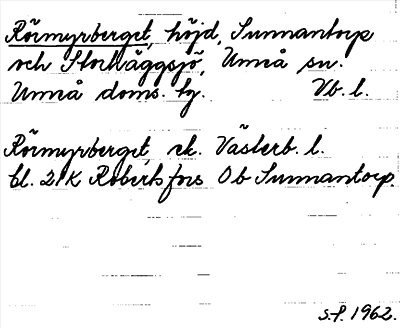 Rörmyrberget, höjd, Sunnantorp
och Storhäggsjö, Umeå sn.
Umeå doms. tg. Vb. l.
Rörmyrberget ek. Västerb. l.
bl. 21K Robertsfors Ob Sunnantorp.
S.f. 1962.